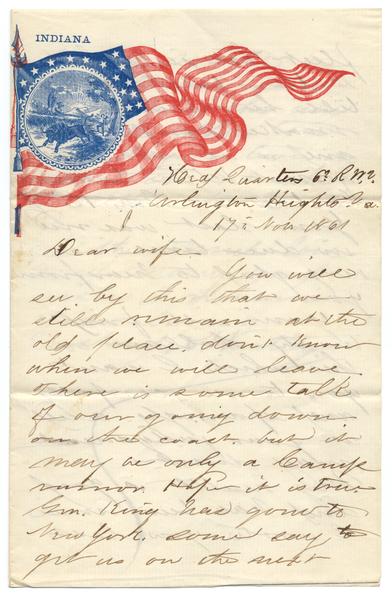 INDIANA
Head Quarters 6th R W.V.
Arlington Heights Va.
17th Nov 1861
Dear wife You will
see by this that we
still remain at the
old place. don't know
when we will leave
there is some talk
of our going down
on the coast. but it
may be only a Camp
rumor. Hope it is true.
Gen. King has gone to
New York. some say to
get us on the next